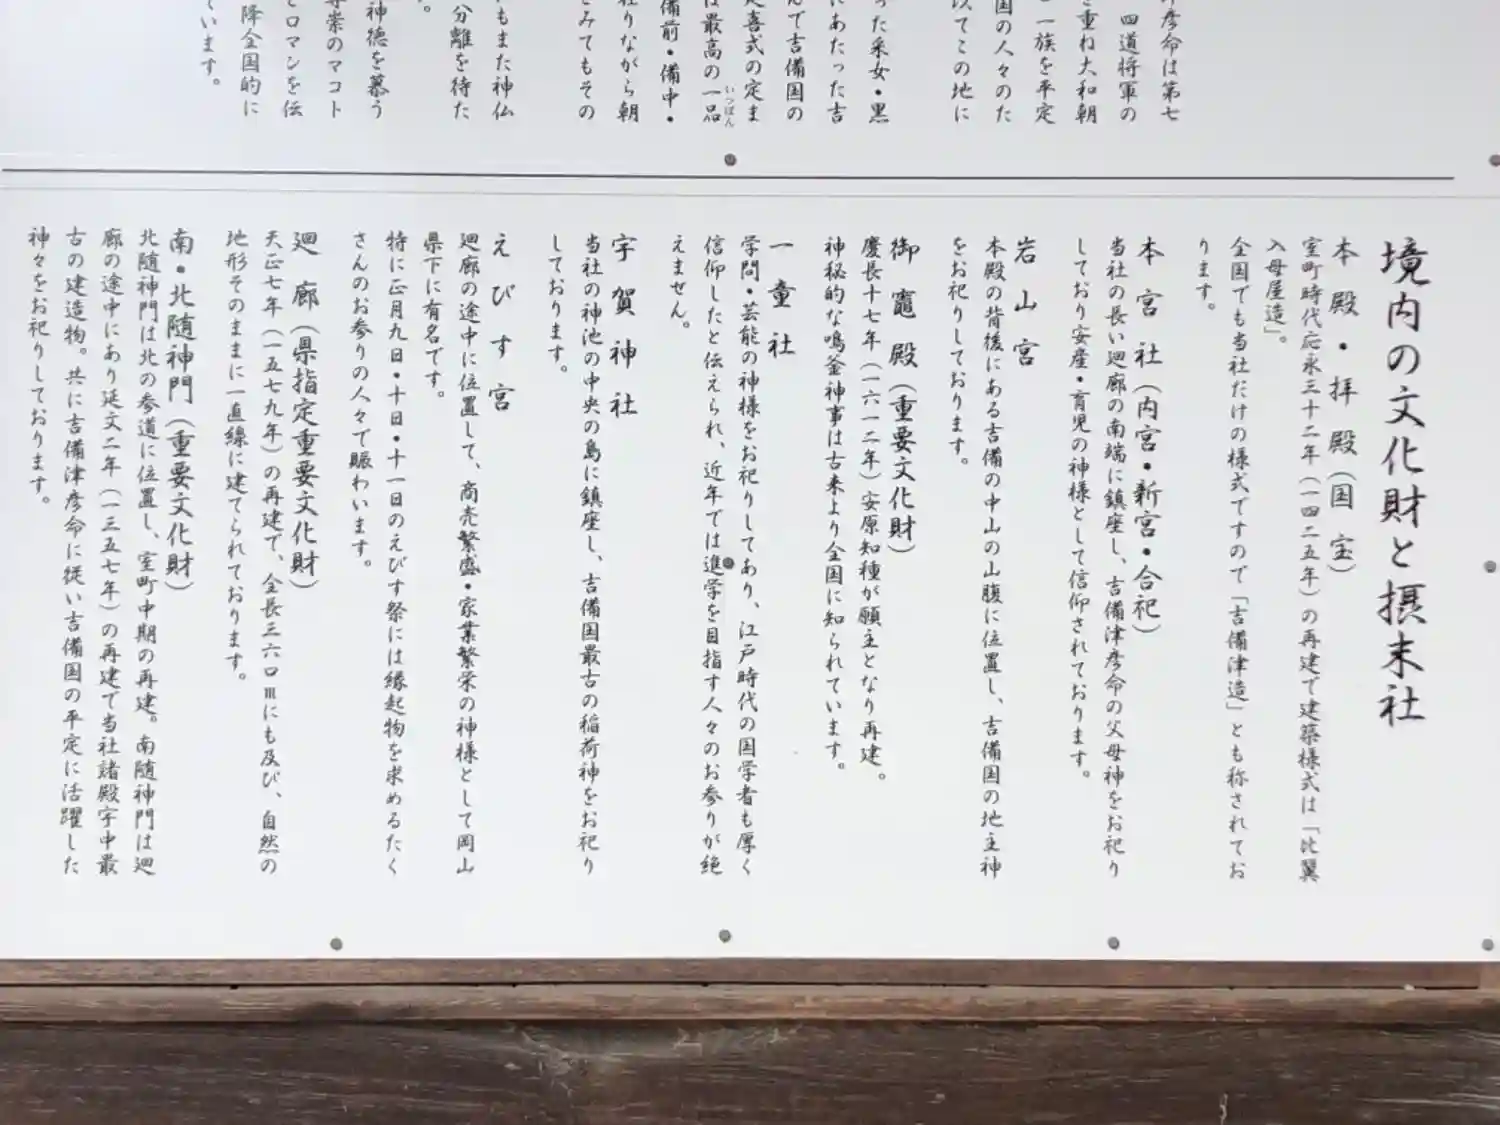 彦命は第七
四道将軍の
重ね大和朝
一族を平定
国の人々のた
以てこの地に
った采女・黒
にあたった吉
んで吉備国の
延喜式の定ま
は最高の一品
いっぽん
備前・備中・
在りながら朝
とみてもその
もまた神仏
分離を待た
。
神徳を慕う
尊崇のマコト
とロマンを伝
降全国的に
ています。
境内の文化財と摂末社
本殿・拝殿(国宝)
室町時代応永三十二年(一四二五年)の再建で建築様式は「比翼
入母屋造」。
全国でも当社だけの様式ですので「吉備津造」とも称されてお
ります。
本宮社(内宮・新宮・合祀)
当社の長い廻廊の南端に鎮座し、吉備津彦命の父母神をお祀り
しており安産・育児の神様として信仰されております。
岩山宮
本殿の背後にある吉備の中山の山腹に位置し、吉備国の地主神
をお祀りしております。
御竈殿(重要文化財)
慶長十七年(一六一二年)安原知種が願主となり再建。
神秘的な鳴釜神事は古来より全国に知られています。
一童社
学問・芸能の神様をお祀りしてあり、江戸時代の国学者も厚く
信仰したと伝えられ、近年では進学を目指す人々のお参りが絶
えません。
宇賀神社
当社の神池の中央の島に鎮座し、吉備国最古の稲荷神をお祀り
しております。
えびす宮
廻廊の途中に位置して、商売繁盛・家業繁栄の神様として岡山
県下に有名です。
特に正月九日・十日・十一日のえびす祭には縁起物を求めるたく
さんのお参りの人々で賑わいます。
廻廊(県指定重要文化財)
天正七年(一五七九年)の再建で、全長三六〇mにも及び、自然の
地形そのままに一直線に建てられております。
南・北随神門(重要文化財)
北随神門は北の参道に位置し、室町中期の再建。南随神門は廻
廊の途中にあり延文二年(一三五七年)の再建で当社諸殿宇中最
古の建造物。共に吉備津彦命に従い吉備国の平定に活躍した
神々をお祀りしております。